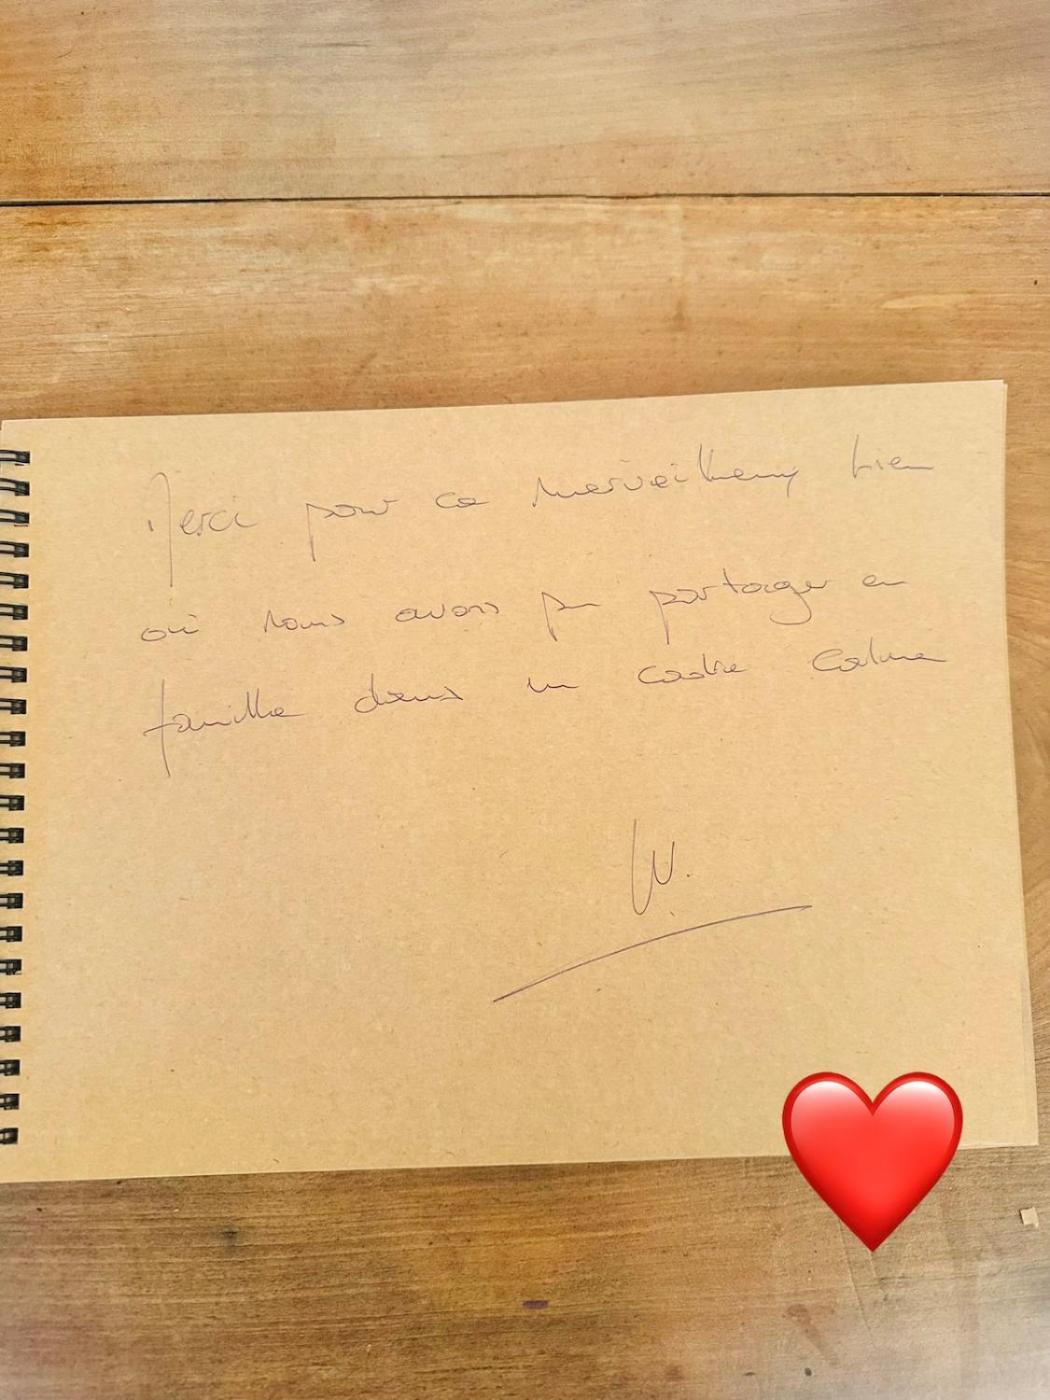 Merci pour ce merveilleux lieu
où nous avons pu partager en
famille dans un cadre calme
W.